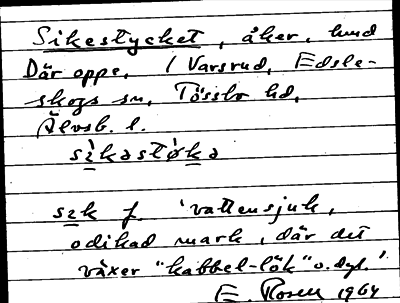 Sikestycket, åker, hund
Där oppe, i Varsrud, Edsle-
skogs sn, Tössbo hd,
Älvsb. l.
sìkəstøkə
sek f. 'vattensjuk,
odikad mark, där det
växer "kabbel-lök" o. dyl.'
E. Rosell 1964